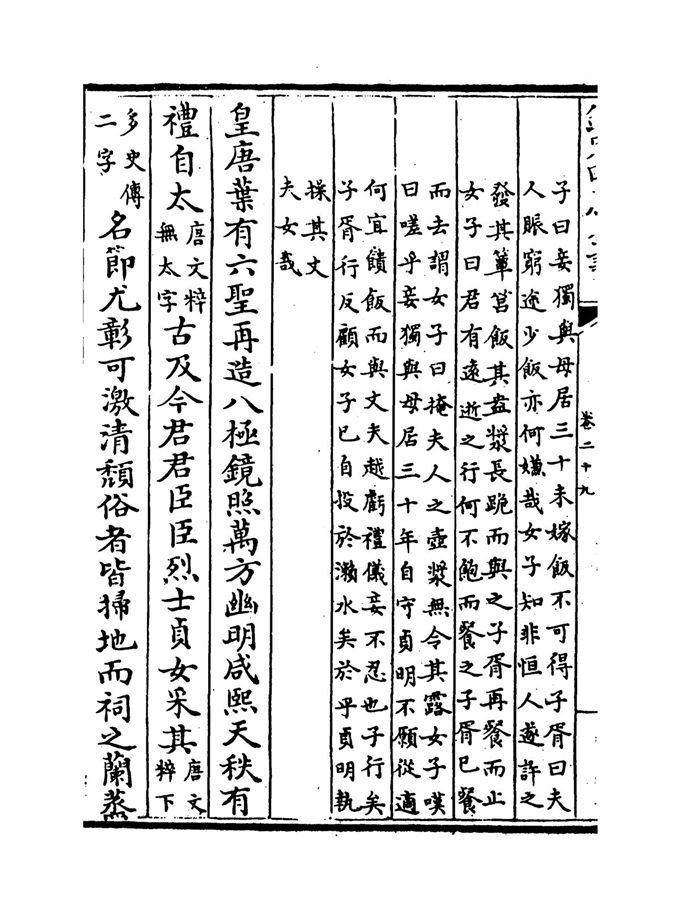 卷二十九
子曰妾獨與母居三十未嫁飯不可得子胥曰夫
人賑窮途少飯亦何嫌哉女子知非恒人遂許之
發其簞筥飯其盎漿長跪而與之子胥再餐而止
女子曰君有遠逝之行何不飽而餐之子胥已餐
而去謂女子曰掩夫人之壺漿無令其露女子嘆
曰嗟乎妾獨與母居三十年自守貞明不願從適
何宜饋飯而與丈夫越虧禮儀妾不忍也子行矣
子胥行反顧女子已自投於瀨水矣於乎貞明執
操其丈
夫女哉
皇唐葉有六聖再造八極鏡照萬方幽明咸熙天秩有
禮自太唐文粹無太字古及今君君臣臣烈士貞女采其唐文粹下
多史傳二字名節尤彰可激清頹俗者皆掃地而祠之蘭蒸